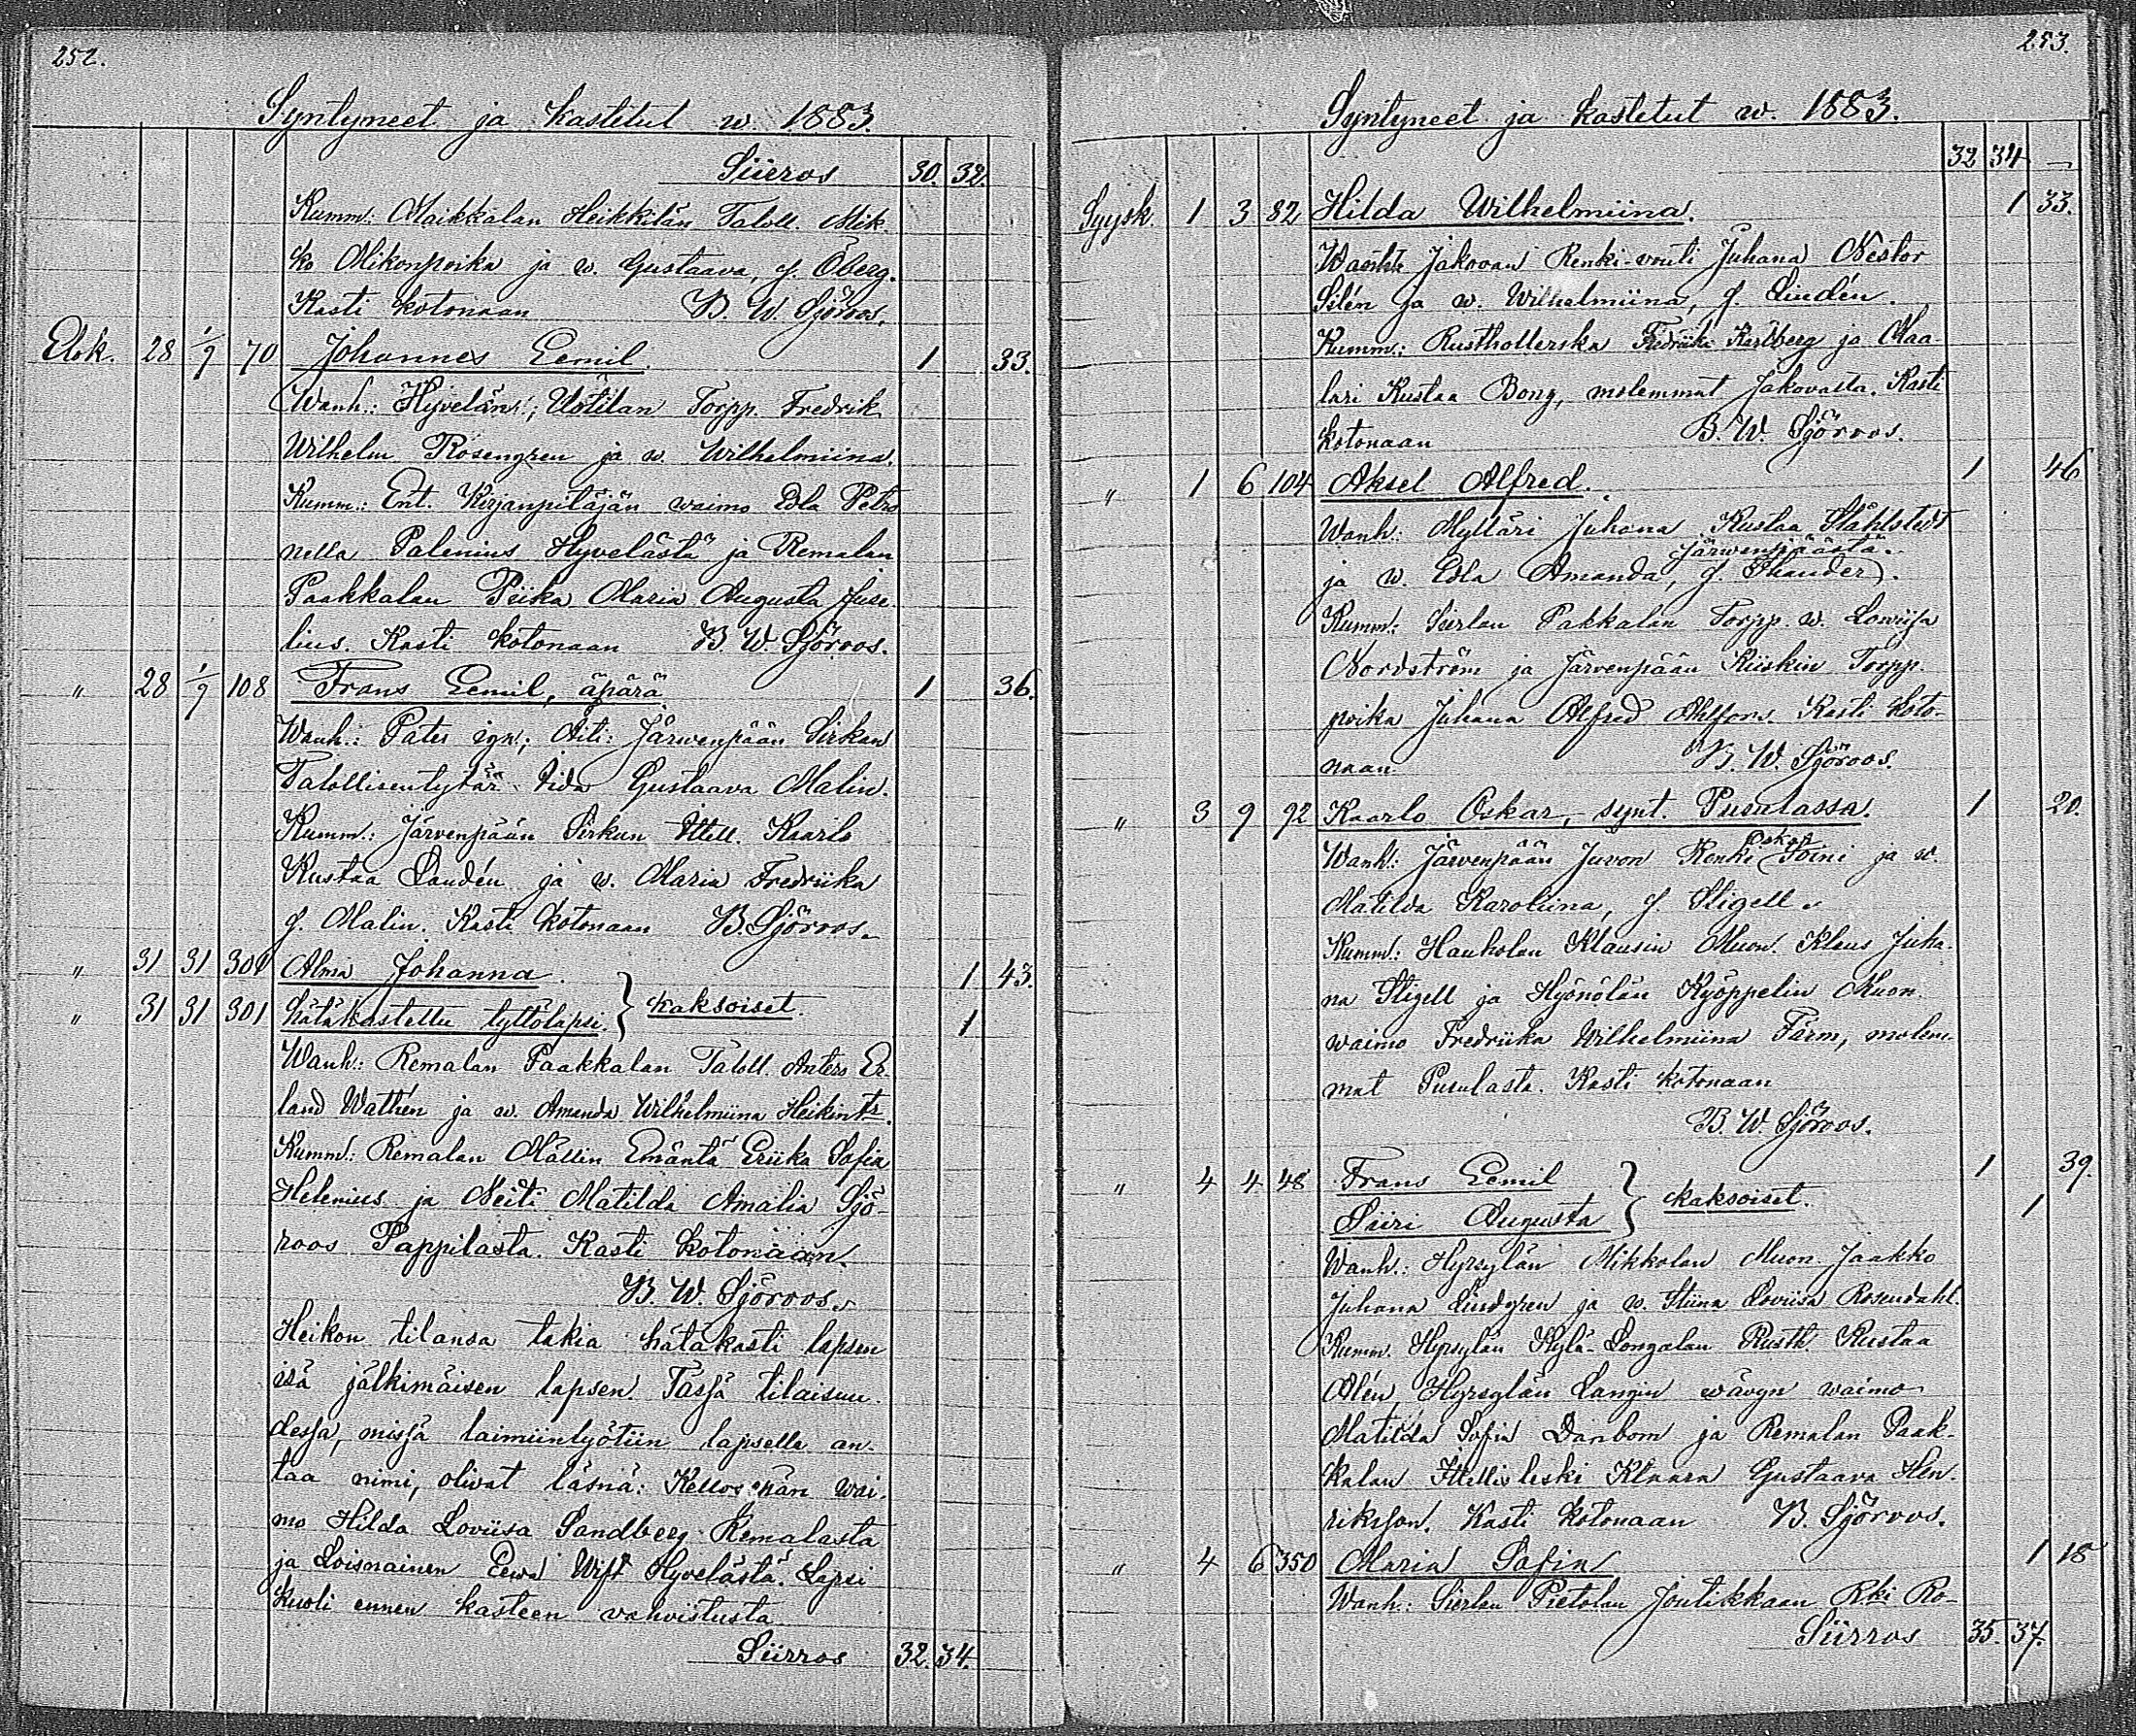 252.
Syntyneet ja kastetut w. 1883.
Siirros 30. 32.
Kumm: Maikkalan Heikkilän Taloll. Mik-
ko Mikonpoika ja w. Gustaava, f. Öberg.
Kasti kotonaan B. W. Sjöroos.
Elok. 28 1/9 70 Johannes Eemil. 1 33.
Wanh.: Hyvelän, Uotilan Torpp. Fredrik
Wilhelm Rosengren ja w. Wilhelmiina.
Kumm.: Ent. Kirjanpitäjän waimo Edla Petro
nella Palenius Hyvelästä ja Remalan
Paakkalan Piika Maria Augusta Juse-
lius. Kasti kotonaan B. W. Sjöroos.
" 28 1/9 108 Frans Eemil, äpärä 1 36.
Wanh.: Pater ign; Äiti: Järwenpään Sirkan
Talollisentytär Iida Gustaava Malin.
Kumm.: Järvenpään Sirkun Ittell. Kaarlo
Kustaa Landén ja w. Maria Fredriika
f. Malin. Kasti kotonaan B. Sjöroos.
" 31 31 301 Alma Johanna. 1 43.
" 31 31 301 hätäkastettu tyttölapsi. } kaksoiset. 1
Wanh.: Remalan Paakkalan Taloll. Antero Er-
land Wathén ja w. Amanda Wilhelmiina Heikintr.
Kumm.: Remalan Mällin Emäntä Eriika Sofia
Helenius ja Neiti Matilda Amalia Sjö-
roos Pappilasta. Kasti kotonaan.
B. W. Sjöroos.
Heikon tilansa takia hätäkasti lapsen
isä jälkimäisen lapsen. Tässä tilaisuu-
dessa, missä laimiinlyötiin lapselle an-
taa nimi, olivat läsnä: Kellosepän wai-
mo Hilda Loviisa Sandberg Remalasta
ja Loismainen Eewa Wift Hyvelästä. Lapsi
kuoli ennen kasteen vahvistusta
Siirros 32. 34.
253.
Syntyneet ja kastetut w. 1883.
32 34 —
Syysk. 1 3 82 Hilda Wilhelmiina. 1 33.
Jakovan Renki-vouti Juhana Nestor
Silén ja w. Wilhelmiina, f. Lindén.
Kumm.: Rusthollerska Fredriika Karlberg ja Maa-
lari Kustaa Bong, molemmat Jakovasta. Kasti
kotonaan B. W. Sjöroos.
" 1 6 104 Aksel Alfred. 1 46
Wanh.: Mylläri Juhana Kustaa Ståhlstedt
Järwenpäästä.
ja w. Edla Amanda, f. Thauder.
Kumm: Sierlan Pakkalan Torpp. w. Lowisa
Nordström ja Järvenpään Kiiskin Torpp.
poika Juhana Alfred Ahlfors. Kasti koto-
naan. B. W. Sjöroos.
" 3 9 92 Kaarlo Oskar, - synt. Pusulassa. 1 20.
Oskar
Wanh: Järvenpään Juvon Renki Toini ja w.
Matilda Karoliina, f. Stigell.
Kumm: Haukolan Klausin Muon. Klaus Juha-
na Stigell ja Hyönölän Kyöppelin Muon.
waimo Fredriika Wilhelmiina Färm, molem-
mat Pusulasta. Kasti kotonaan
B. W. Sjöroos.
" 4 4 48 Frans Eemil 1 39.
Siiri Augusta } kaksoiset. 1
Wanh.: Hyrsylän Mikkolan Muon. Jaakko
Juhana Lindgren ja w. Stiina Loviisa Rosendahl.
Kumm. Hyrsylän Kylä-Songalan Rusth. Kustaa
Alén, Hyrsylän Langin wävyn waimo
Matilda Sofia Danbom ja Remalan Paak-
kalan Ittellisleski Klaara Gustaava Hen-
rikson. Kasti kotonaan B. Sjöroos.
" 4 6 350 Maria Sofia 1 18
Wanh: Sierlan Pietolan Joutikkaan Rki Ro-
Siirros 35. 37.